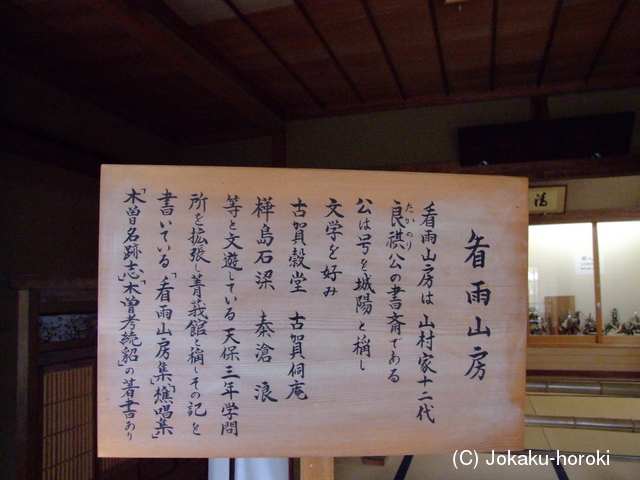 看雨山房
看雨山房は 山村家十二代
良祺公の書斎である
たかのり
公は号を城陽と稱し
文学を好み
古賀穀堂 古賀侗庵
樺島石梁 秦滄浪
等と文遊している 天保三年学問
所を拡張し菁莪館と稱しその記を
書いている「看雨山房集」「樵唱集」
「木曽名跡志」「木曽考続貂」の著書あり
(C) Jokaku-horoki